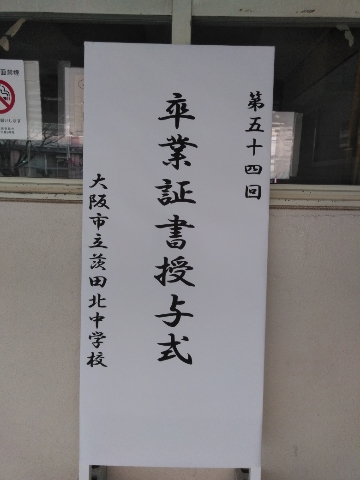 第五十四回
卒業証書授与式
大阪市立茨田北中学校